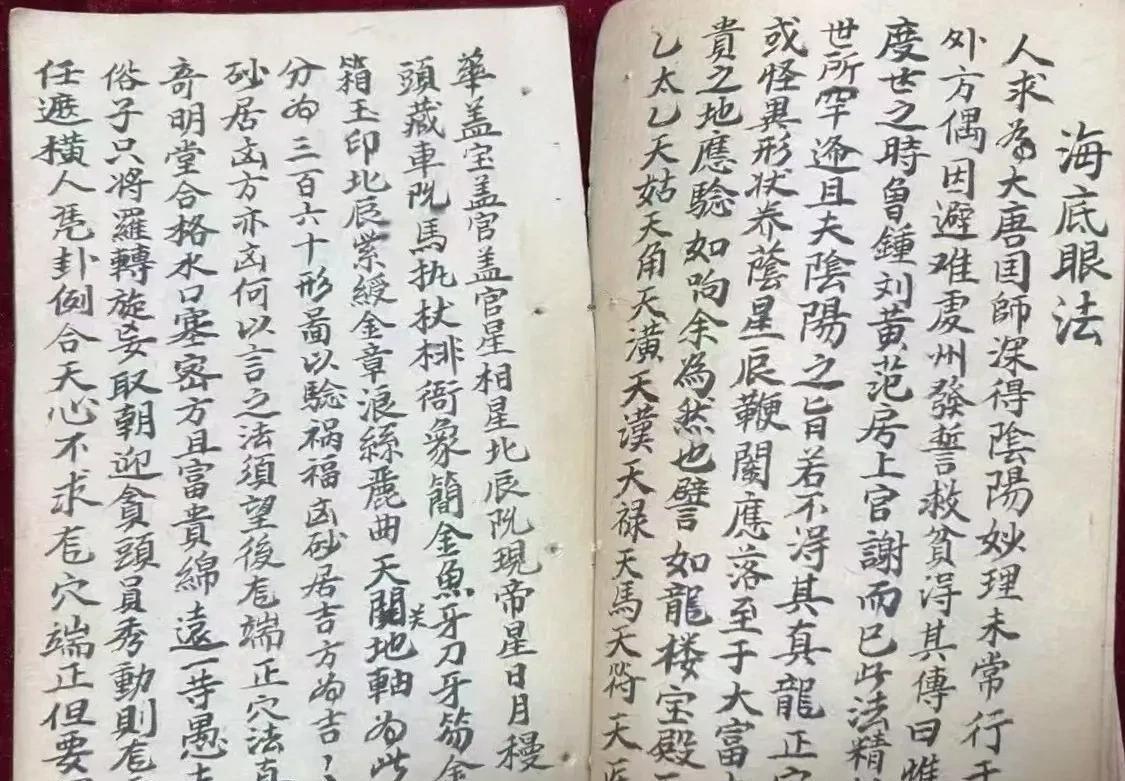 海底眼法
人求為大唐国師深得陰陽妙理未常行于
外方偶因避难虔州發誓救貧得其傳曰惟
度世之時曾鍾刘黄范房上官謝而已此法精
世所罕逄且夫陰陽之旨若不得其真龍正穴
或怪異形状养蔭星辰鞭闌應落至于大富
貴之地應驗如响余為然也譬如龍楼宝殿
乙太乙天姑天角天潢天漢天禄天馬天符天
華盖宝盖官盖官星相星北辰阮現帝星日月
頭藏車阮馬执杖排衙象簡金魚牙刀牙笏金
箱玉印北辰紫綬金章浪絲麗曲天關关地軸為此
分為三百六十形畐以驗祸福凶砂居吉方為吉
砂居凶方亦凶何以言之法須望後龙端正穴法真
奇明堂合格水口塞密方且富貴綿遠一等愚夫
俗子只将羅轉旋妄取朝迎貪頭員秀動則龙
任遮横人凴卦例合天心不求龙穴端正但要